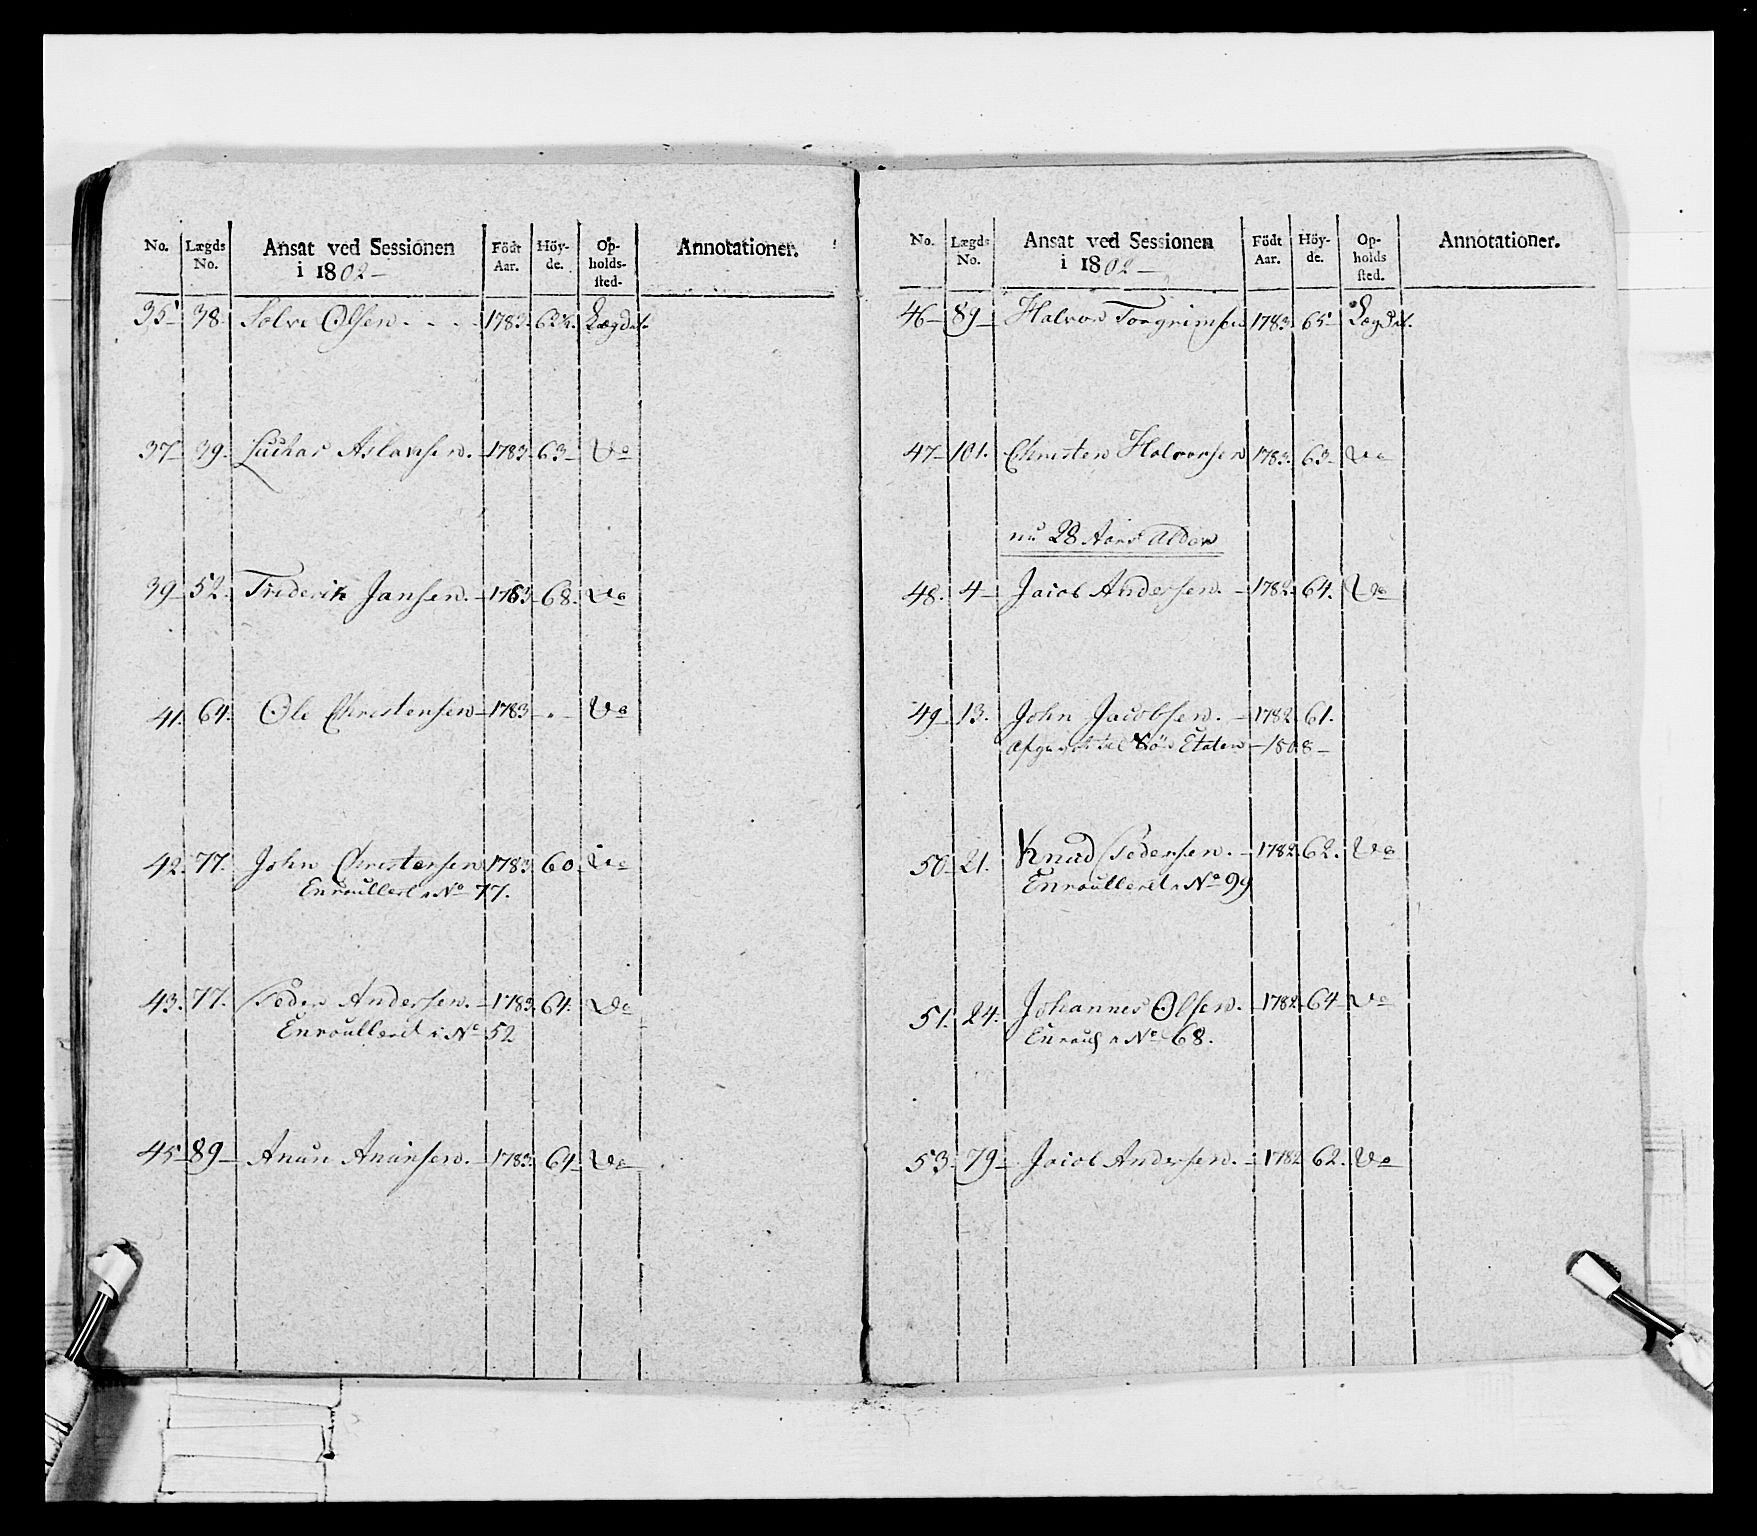 No. Lægds No. Ansat ved Sessionen i 1802 – Födt Aar. Höy-de. Op-holds-sted. Annotationer.
35 – 38. Solve Olsen . . . . 1783. 62½. Lægdet.
37 – 39. Luchas Aslaksen. – 1783. 63 – Do
39 – 52. Friderik Jansen. – 1783. 68. Do
41. 64. Ole Christensen – 1783 – „ – Do
42. 77. John Christensen 1783. 60. Do
Enroulleret i No 77.
43. 77. Peder Andersen. – 1783. 64. Do
Enroulleret i No 52
45 – 89 – Anun Anunsen. – 1783. 64 – Do
No. Lægds No. Ansat ved Sessionen i 1802 – Födt Aar. Höy-de. Op-holds sted. Annotationer.
46 – 89 – Halvor Torgrimsen 1783. 65 – Lægdet.
47 – 101. Christen Halvorsen 1783. 63 – Do
nu 28 Aars Alder
48. 4 – Jacob Andersen. – 1782. 64. Do
49 – 13. John Jacobsen. – 1782. 61.
Afgivet til Söe Etaten – 1808 –
50 – 21. Knud Pedersen. – 1782. 62. Do
Enroulleret i No 99
51. 24. Johannes Olsen. – 1782. 64 – Do
Enroul i No 68.
53. 79 – Jacob Andersen. – 1782 62. Do